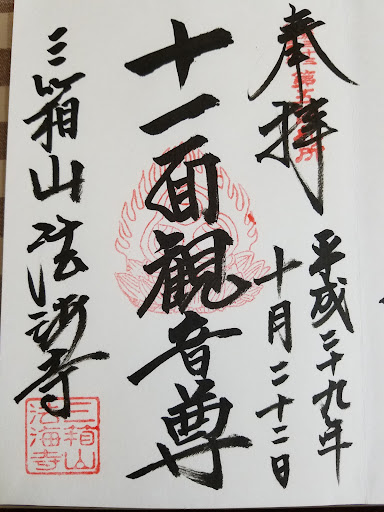 奉拝
平成二十九年
十月二十二日
十一面観音尊
三箱山法海寺
三箱山
法海寺